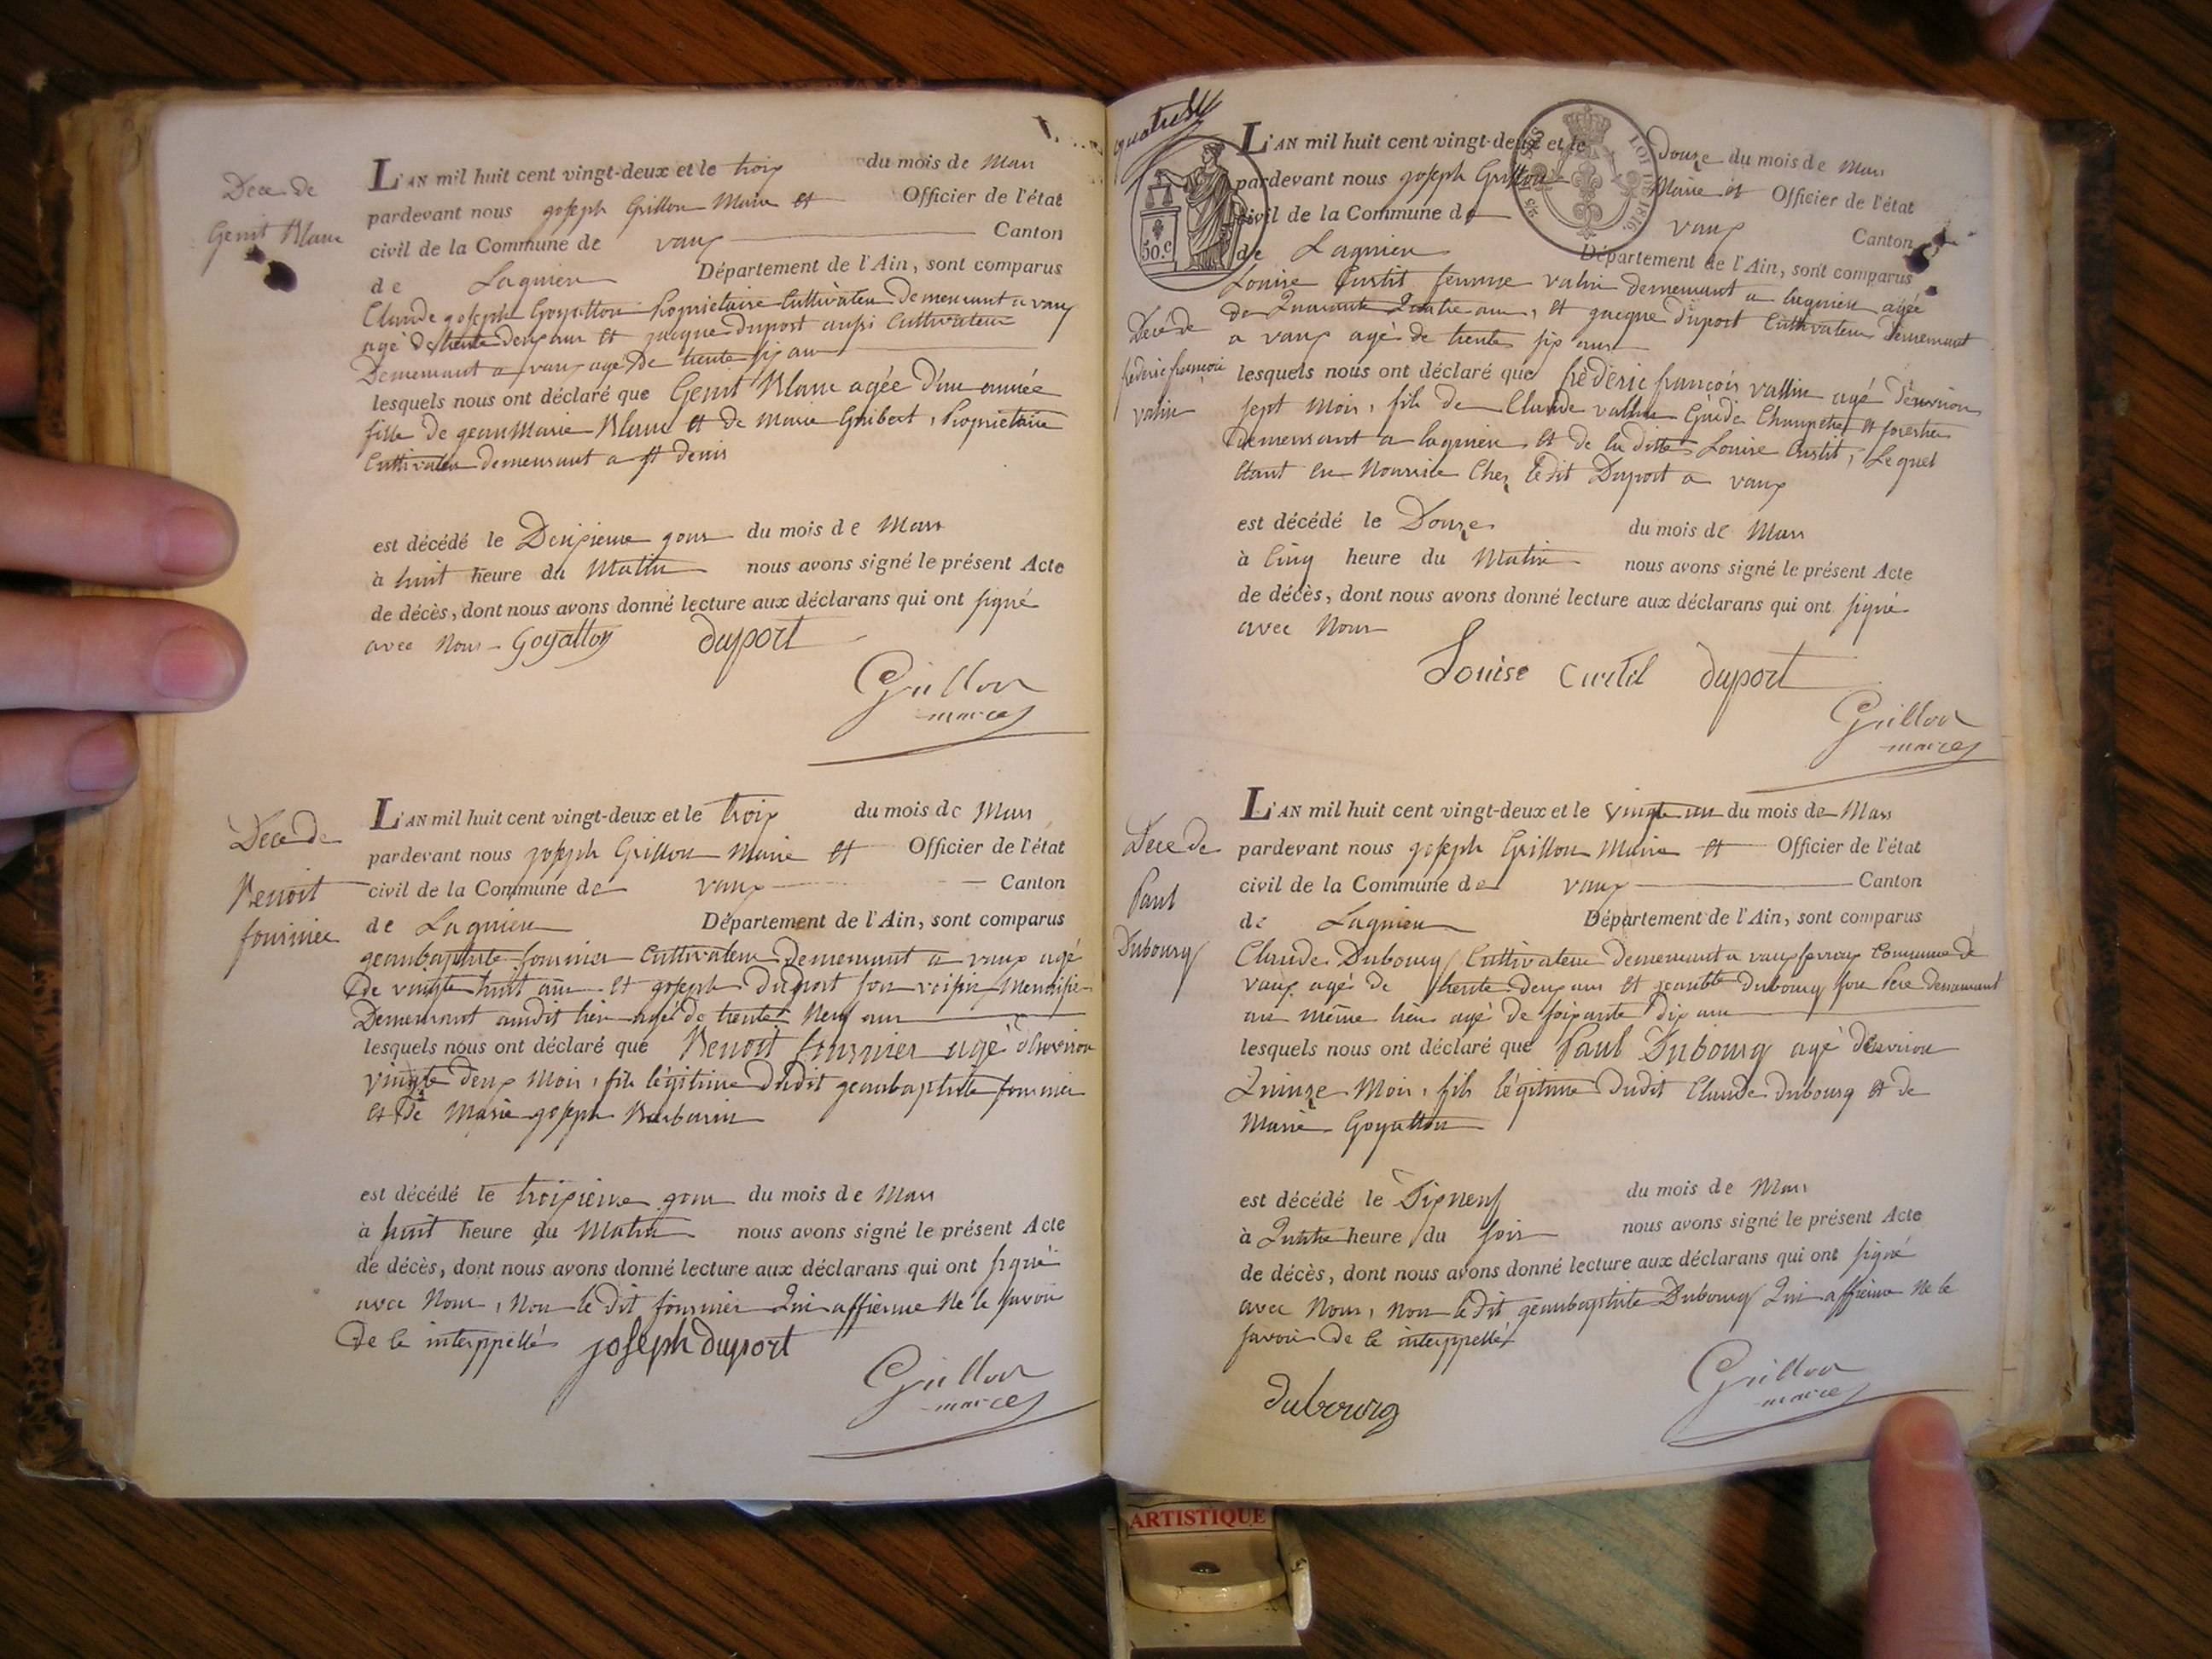 Dece de
Genit Blanc
L'AN mil huit cent vingt-deux et le troix du mois de Mars
pardevant nous joseph Grillon Maire et Officier de l'état
civil de la Commune de vaux Canton
de Lagnieu Département de l'Ain, sont comparus
Claude joseph Goyatton Proprietaire Cultivateur Demeurant a vaux
agé de trente deux ans et jacque Duport aussi Cultivateur
Demeurant a vaux agé De trente six ans
lesquels nous ont déclaré que Genit Blanc agée d'une année
fille de geanMarie Blanc et de Marie Guibert, Proprietaire
Cultivateur demeurant a st denis
est décédé le Deuxieme jour du mois de Mars
à huit heure du Matin nous avons signé le présent Acte
de décès, dont nous avons donné lecture aux déclarans qui ont signé
avec Nous Goyatton duport
Grillon
maire
Dece de
Benoit
fournier
L'AN mil huit cent vingt-deux et le troix du mois de Mars
pardevant nous joseph Grillon Maire et Officier de l'état
civil de la Commune de vaux Canton
de Lagnieu Département de l'Ain, sont comparus
geanbaptiste fournier Cultivateur Demeurant a vaux agé
de vingte huit ans et joseph Duport son voisin
Demeurant audit lieu agé de trente Neuf ans
lesquels nous ont déclaré que Benoit fournier agé d'Environ
vingte deux Mois, fils légitime Dudit geanbaptiste fournier
et De Marie joseph Barbarin
est décédé le troisieme jour du mois de Mars
à huit heure du Matin nous avons signé le présent Acte
de décès, dont nous avons donné lecture aux déclarans qui ont signé
avec Nous, Non le Dit fournier Qui affirme Ne le savoir
De le interppellés joseph duport
Grillon
maire
50.c
LOI DE 1816
L'AN mil huit cent vingt-deux et le Douze du mois de Mars
pardevant nous joseph Grillon Maire et Officier de l'état
civil de la Commune de vaux Canton
de Lagnieu Département de l'Ain, sont comparus
Dece de
frederic françois
valin
Louise Curtit femme valin demeurant a lagnieu agée
de Quarante Quatre ans, et jacque Duport Cultivateur Demeurant
a vaux agé de trente six ans
lesquels nous ont déclaré que frederic françois vallin agé d'environ
sept Mois, fils de Claude vallin Garde Champetre et forestier
Demeurant a lagnieu, et de la ditte Louise Curtit, Lequel
Etant En Nourrice Chez le dit Duport a vaux
est décédé le Douze du mois de Mars
à Cinq heure du Matin nous avons signé le présent Acte
de décès, dont nous avons donné lecture aux déclarans qui ont signé
avec Nous
Louise Curtil duport
Grillon
maire
Dece de
Paul
Dubourg
L'AN mil huit cent vingt-deux et le vingte un du mois de Mars
pardevant nous joseph Grillon Maire et Officier de l'état
civil de la Commune de vaux Canton
de Lagnieu Département de l'Ain, sont comparus
Claude Dubourg Cultivateur demeurant a vaux Commune de
vaux agé de trente deux ans et jeanbte Dubourg son Pere demeurant
au même lieu agé de soixante Dix ans
lesquels nous ont déclaré que Paul Dubourg agé d'Environ
Quinze Mois, fils légitime Dudit Claude Dubourg et de
Marie Goyatton
est décédé le Dixneuf du mois de Mars
à Quatre heure du soir nous avons signé le présent Acte
de décès, dont nous avons donné lecture aux déclarans qui ont signé
avec Nous, Non le Dit geanbaptiste Dubourg Qui affirme Ne le
savoir De le interppellés
dubourg
Grillon
maire
ARTISTIQUE